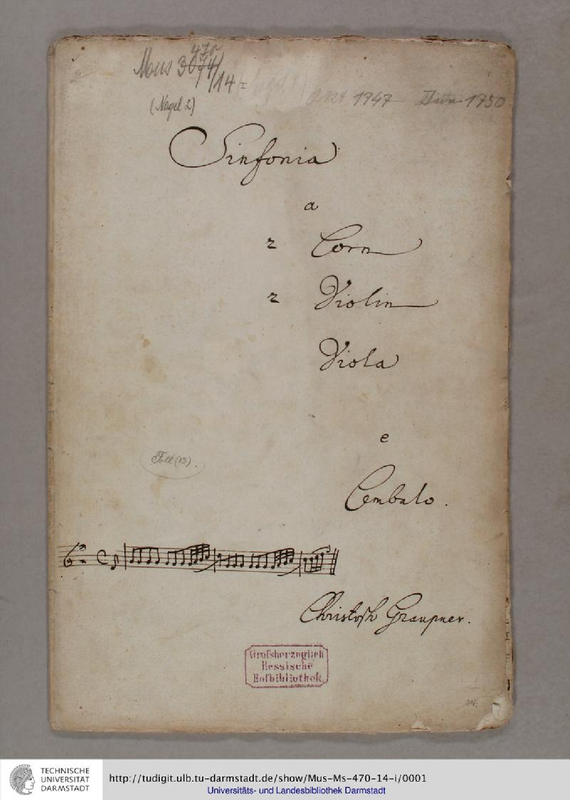 Mus 3074/14
470
(Nagel 2)
1947 1950
Sinfonia
a
2 Corn
2 Violin
Viola
e
Cembalo.
Christoph Graupner.
Großherzoglich
Hessische
Hofbibliothek.
TECHNISCHE
UNIVERSITÄT
DARMSTADT
http://tudigit.ulb.tu-darmstadt.de/show/Mus-Ms-470-14-i/0001
Universitäts- und Landesbibliothek Darmstadt